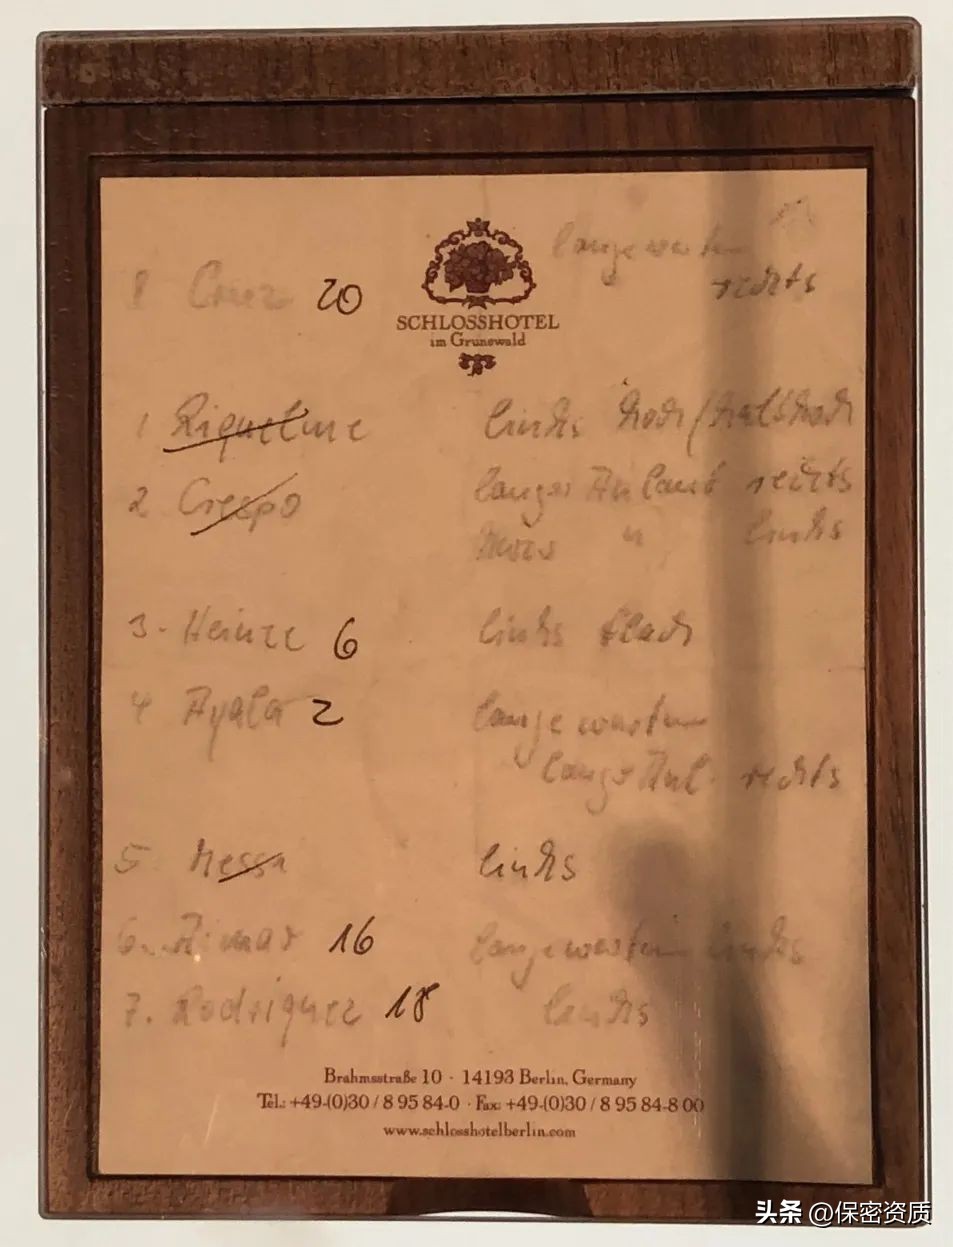 lange warten
8 Cruz 20 rechts
SCHLOSSHOTEL
im Grunewald
1 Riquelme links hoch/halbhoch
2 Crespo langer Anlauf rechts
kurz " links
3. Heinze 6 links flach
4 Ayala 2 lange warten
langer Anl. rechts
5 Messi links
6. 16 lange warten links
7. Rodriguez 18 links
Brahmsstraße 10 · 14193 Berlin, Germany
Tel.: +49-(0)30 / 8 95 84-0 · Fax: +49-(0)30 / 8 95 84-8 00
www.schlosshotelberlin.com
头条 @保密资质